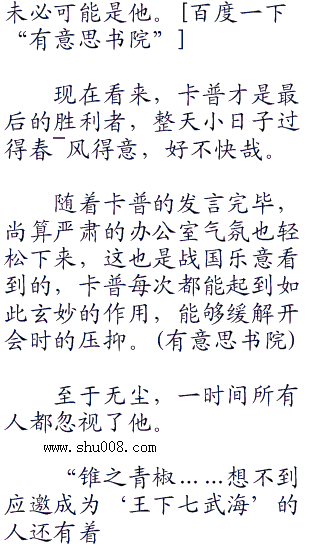 未必可能是他。[百度一下
“有意思书院”]
现在看来，卡普才是最
后的胜利者，整天小日子过
得春¯风得意，好不快哉。
随着卡普的发言完毕，
尚算严肃的办公室气氛也轻
松下来，这也是战国乐意看
到的，卡普每次都能起到如
此玄妙的作用，能够缓解开
会时的压抑。(有意思书院)
至于无尘，一时间所有
人都忽视了他。
www.shu008.com
“锥之青椒……想不到
应邀成为‘王下七武海’的
人还有着